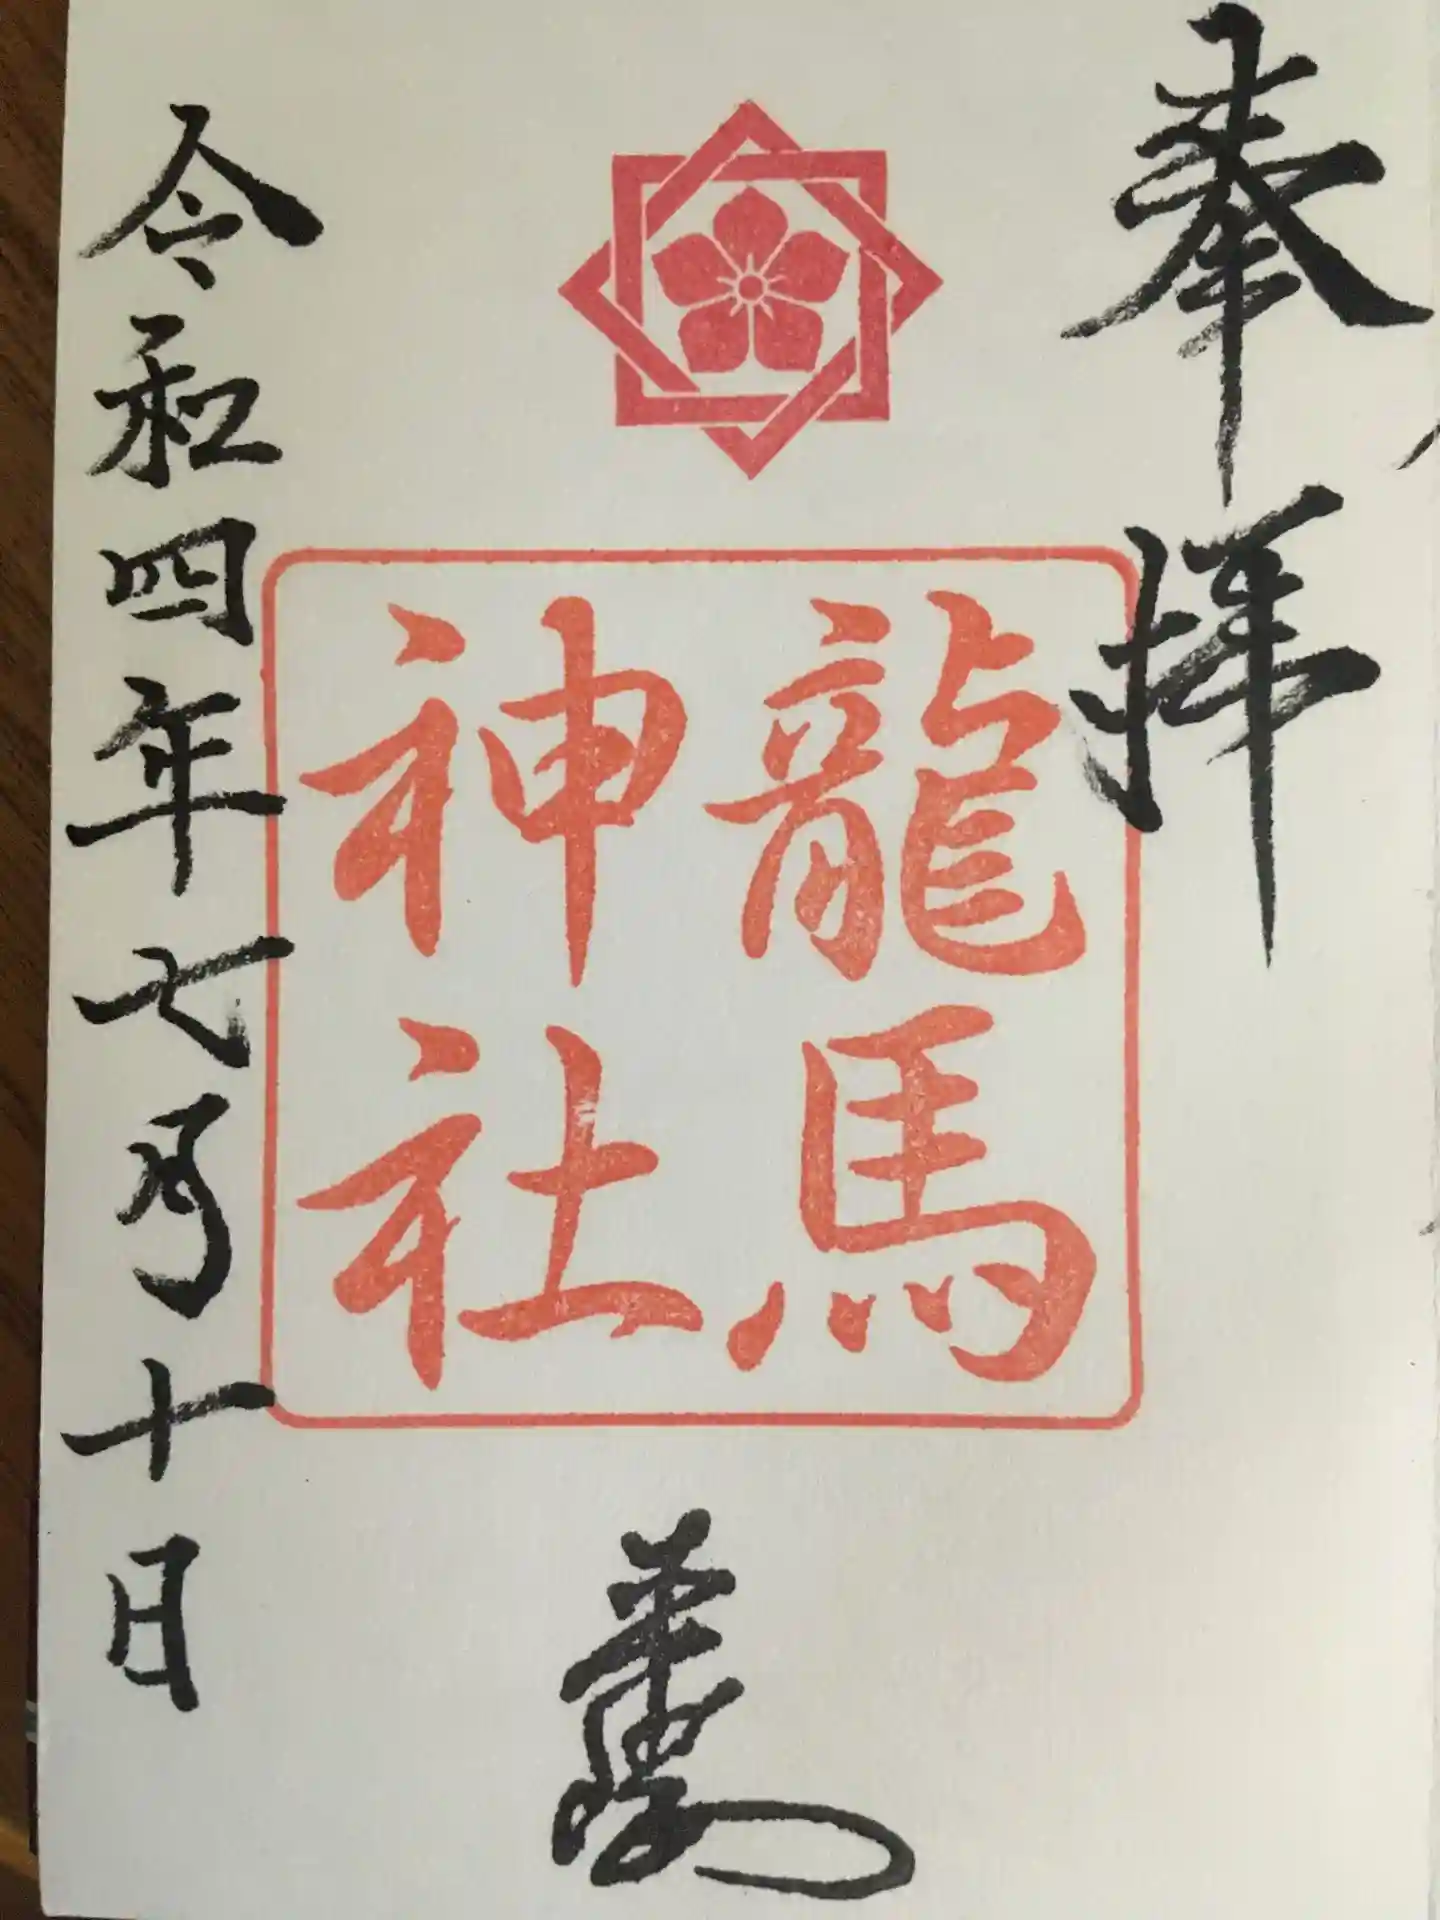 奉拝
龍馬
神社
令和四年七月十日